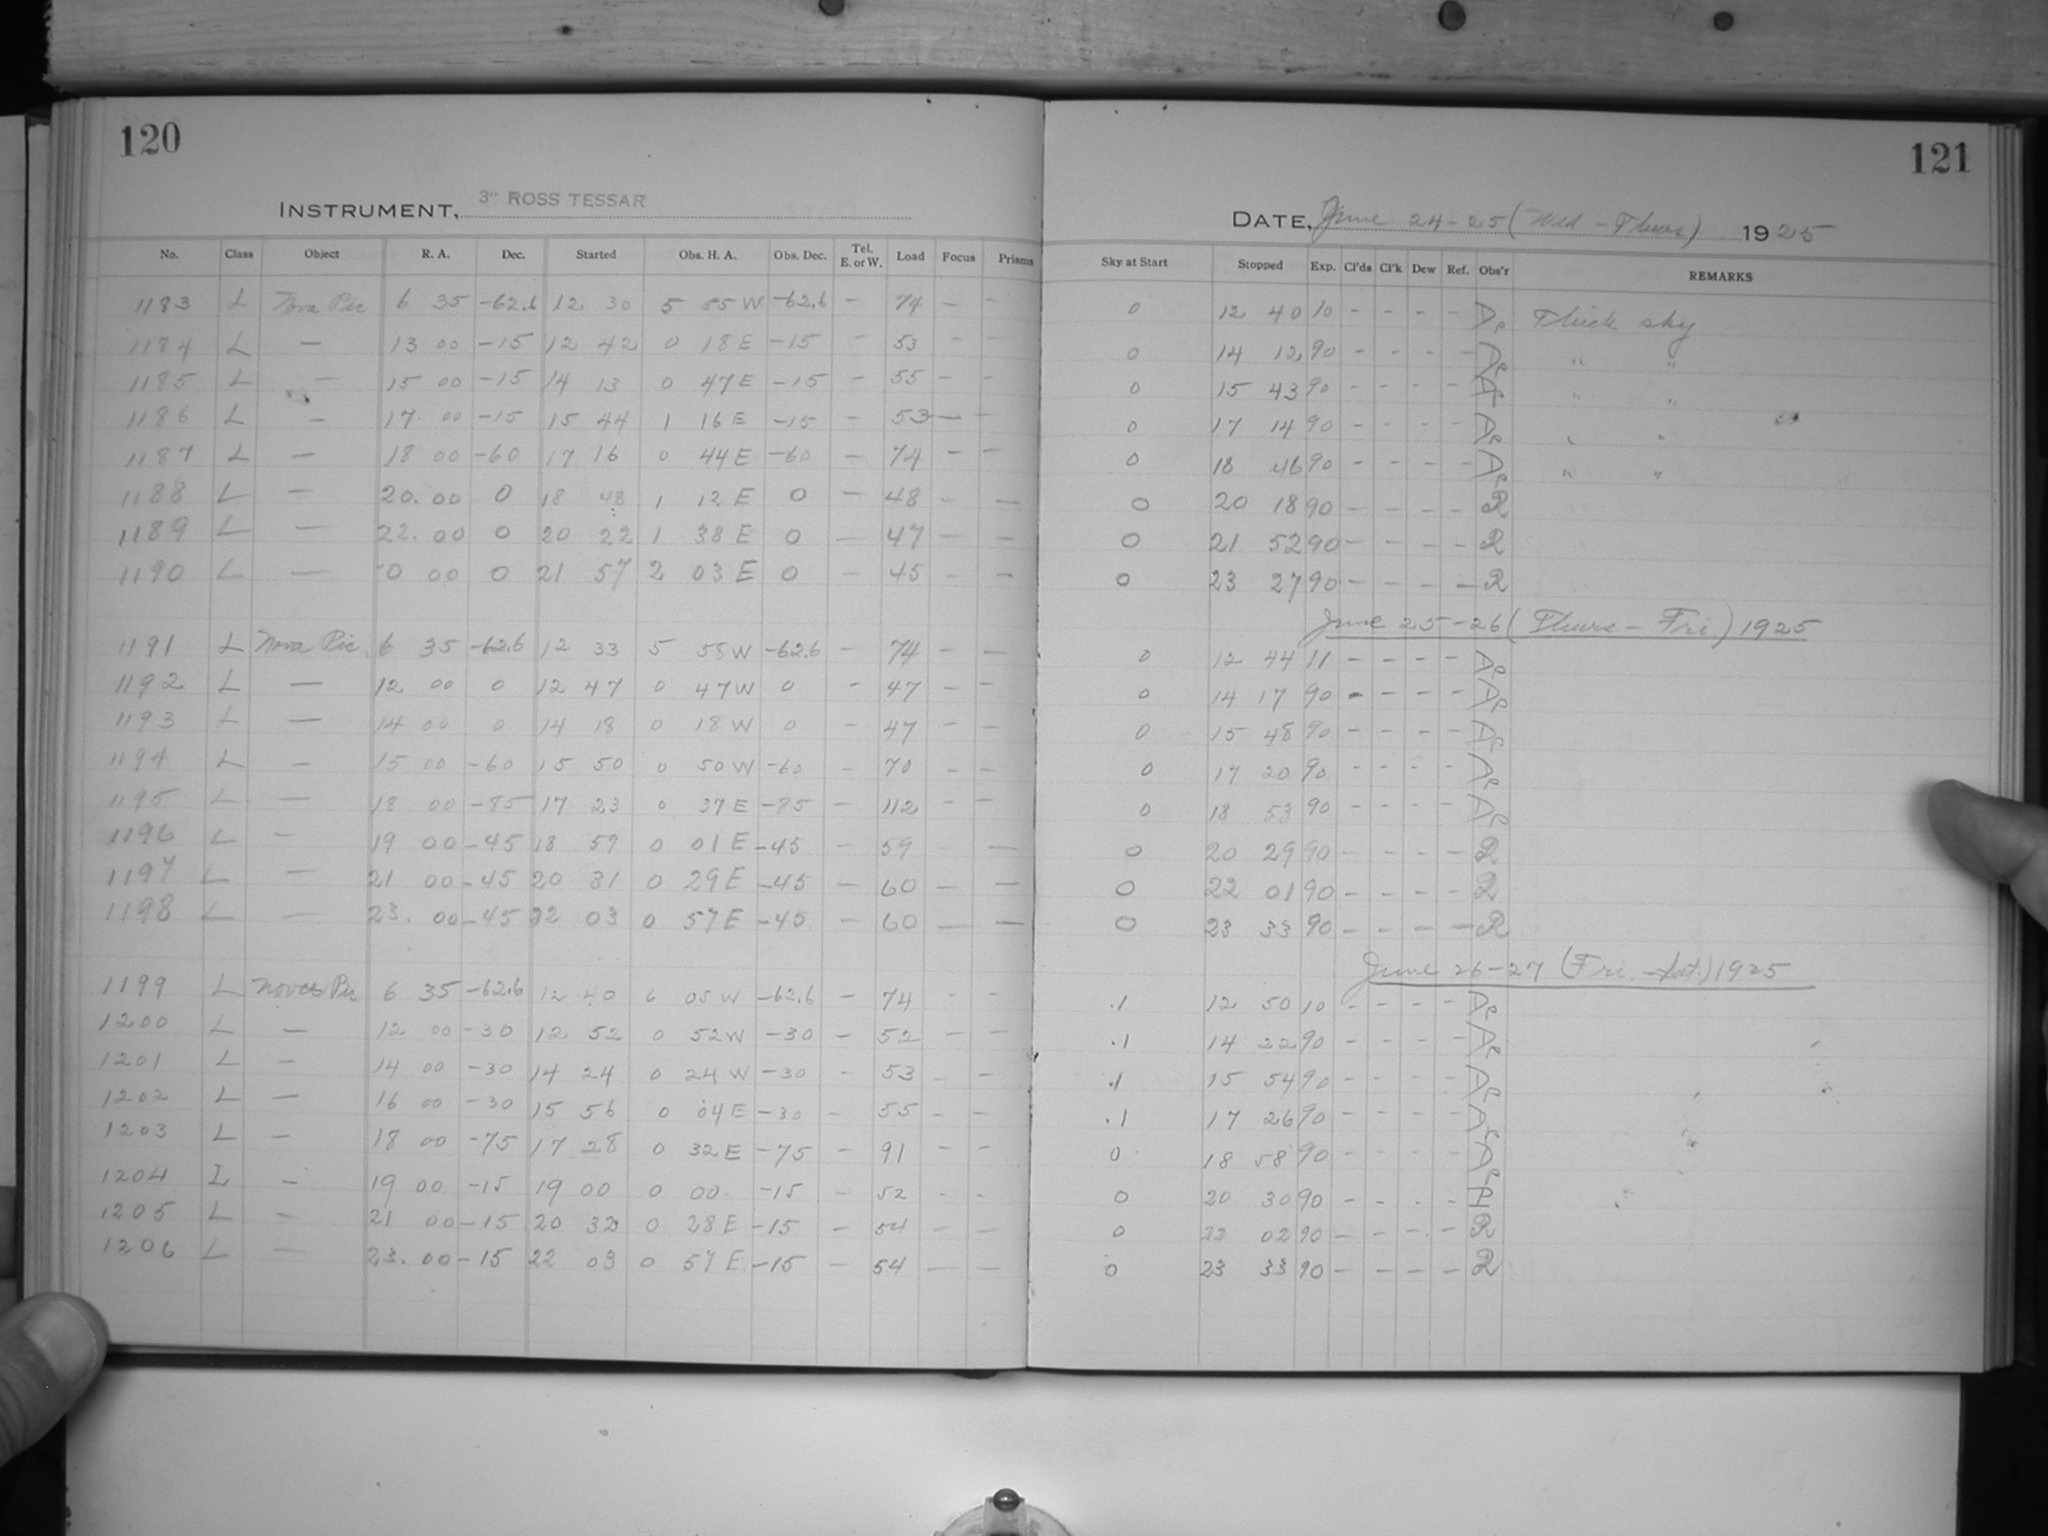 120
INSTRUMENT, 3" ROSS TESSAR
No. Class Object R. A. Dec. Started Obs. H. A. Obs. Dec. Tel. E. or W. Load Focus Prisms
1183 L Nova Pic 6 35 -62.6 12 30 5 55 W -62.6 - 74 - -
1184 L — 13 00 -15 12 42 0 18 E -15 - 53 - -
1185 L — 15 00 -15 14 13 0 47 E -15 - 55 - -
1186 L — 17 00 -15 15 44 1 16 E -15 - 53 - -
1187 L — 18 00 -60 17 16 0 44 E -60 - 74 - -
1188 L — 20. 00 0 18 48 1 12 E 0 - 48 - -
1189 L — 22. 00 0 20 22 1 38 E 0 - 47 - -
1190 L — 0 00 0 21 57 2 03 E 0 - 45 - -
1191 L Nova Pic. 6 35 -62.6 12 33 5 58 W -62.6 - 74 - -
1192 L — 12 00 0 12 47 0 47 W 0 - 47 - -
1193 L — 14 00 0 14 18 0 18 W 0 - 47 - -
1194 L — 15 00 -60 15 50 0 50 W -60 - 70 - -
1195 L — 18 00 -85 17 23 0 37 E -85 - 112 - -
1196 L — 19 00 -45 18 59 0 01 E -45 - 59 - -
1197 L — 21 00 -45 20 31 0 29 E -45 - 60 - -
1198 L — 23. 00 -45 22 03 0 57 E -45 - 60 - -
1199 L Nova Pic 6 35 -62.6 12 40 6 05 W -62.6 - 74 - -
1200 L — 12 00 -30 12 52 0 52 W -30 - 52 - -
1201 L — 14 00 -30 14 24 0 24 W -30 - 53 - -
1202 L — 16 00 -30 15 56 0 04 E -30 - 55 - -
1203 L — 18 00 -75 17 28 0 32 E -75 - 91 - -
1204 L — 19 00 -15 19 00 0 00 -15 - 52 - -
1205 L — 21 00 -15 20 32 0 28 E -15 - 54 - -
1206 L — 23. 00 -15 22 03 0 57 E -15 - 54 - -
121
DATE, June 24-25 (Wed - Thurs) 1925
Sky at Start Stopped Exp. Cl'ds Cl'k Dew Ref. Obs'r REMARKS
0 12 40 10 - - - - Thick sky
0 14 12 90 - - - - " "
0 15 43 90 - - - - " "
0 17 14 90 - - - - " "
0 18 46 90 - - - - " "
0 20 18 90 - - - - R
0 21 52 90 - - - - R
0 23 27 90 - - - - R
June 25-26 (Thurs - Fri.) 1925
0 12 44 11 - - - -
0 14 17 90 - - - -
0 15 48 90 - - - -
0 17 20 90 - - - -
0 18 53 90 - - - -
0 20 29 90 - - - - R
0 22 01 90 - - - - R
0 23 33 90 - - - - R
June 26-27 (Fri. - Sat.) 1925
.1 12 50 10 - - - -
.1 14 22 90 - - - -
.1 15 54 90 - - - -
.1 17 26 90 - - - -
0 18 58 90 - - - -
0 20 30 90 - - - -
0 22 02 90 - - - - R
0 23 33 90 - - - - R